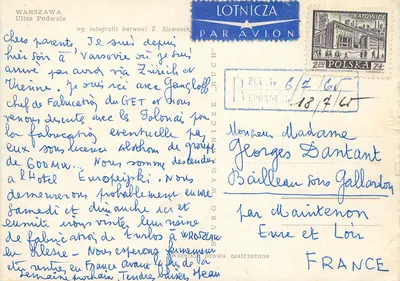 WARSZAWA
Ulica Podwale
wg fotografii barwnej Z. Siemaszki
LOTNICZA
PAR AVION
KATOWICE
2,50 POLSKA ZŁ
REÇU le 6/7/65
REPONDU le 18/7/65
chers parents. Je suis depuis
hier soir à Varsovie où je suis
arrivé par avion via Zürich et
Vienne. Je suis ici avec
chef de Fabrication du GET et nous
venons discuter avec les Polonais pour
la fabrication éventuelle par
eux sous licence Alsthom de groupes
de 600MW. Nous sommes descendus
à l'Hotel Europejski. Nous
demeurerons probablement encore
Samedi et dimanche ici et
ensuite nous visiterons leur usine
de fabrication de turbos à
en Silésie. Nous espérons fermement
rentrer en France avant la fin de la
semaine prochaine. Tendres baisers Jean
BIURO WYDAWNICZE "RUCH"
prawa zastrzeżone
Monsieur Madame
Georges Dantant
Bailleau sous Gallardon
par Maintenon
Eure et Loir
FRANCE